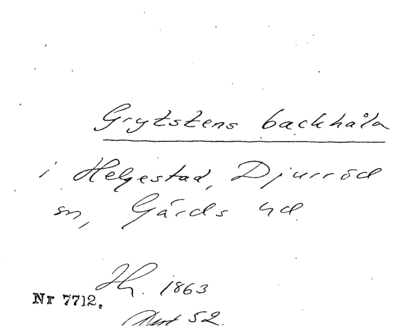 Grytstens backhåla
i Helgestad, Djurröd
sn, Gärds hd
Hr. 1863
Nr 7712.
52.